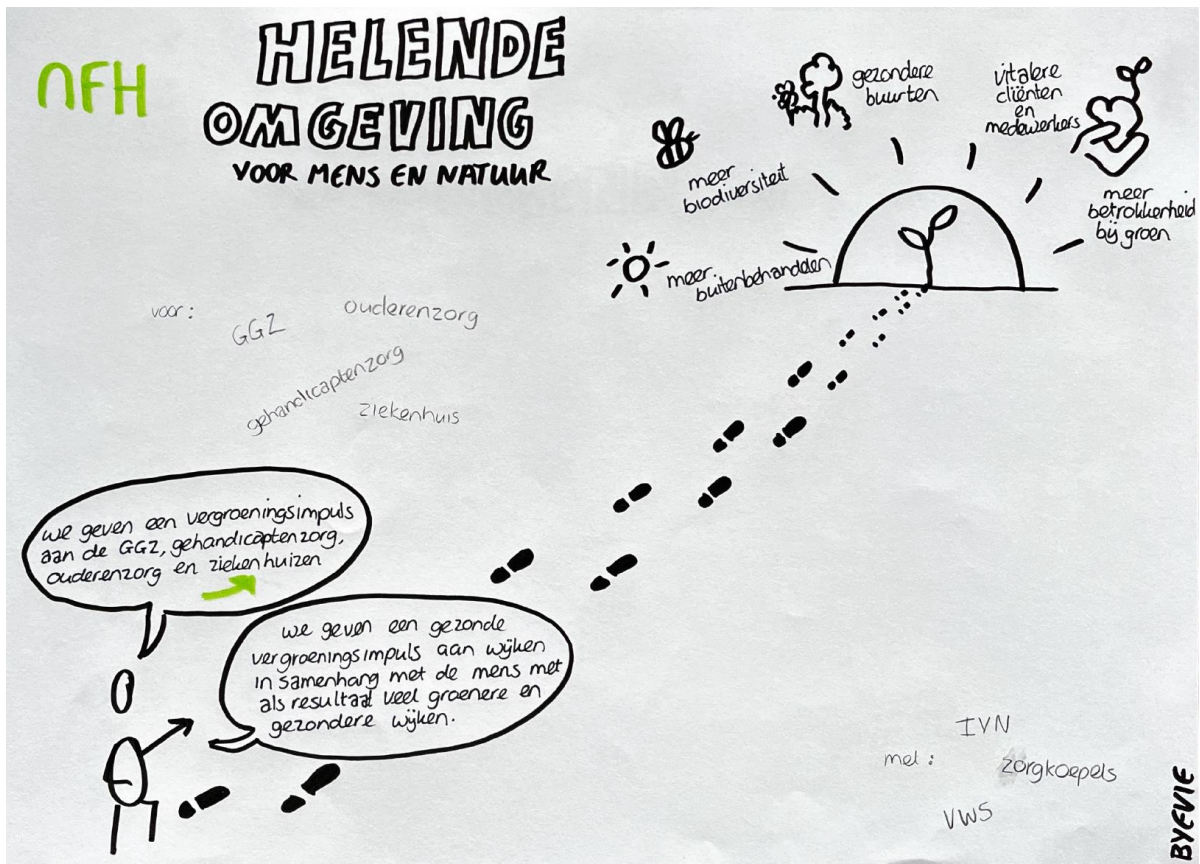 NFH
HELENDE
OMGEVING
VOOR MENS EN NATUUR
gezondere
buurten
vitalere
cliënten
en
medewerkers
meer
biodiversiteit
meer
betrokkenheid
bij groen
meer
buitenbehandelen
voor:
GGZ
ouderenzorg
gehandicaptenzorg
ziekenhuis
we geven een vergroeningsimpuls
aan de GGZ, gehandicaptenzorg,
ouderenzorg en ziekenhuizen
we geven een gezonde
vergroeningsimpuls aan wijken
in samenhang met de mens met
als resultaat veel groenere en
gezondere wijken.
met:
IVN
zorgkoepels
VWS
BYEVIE